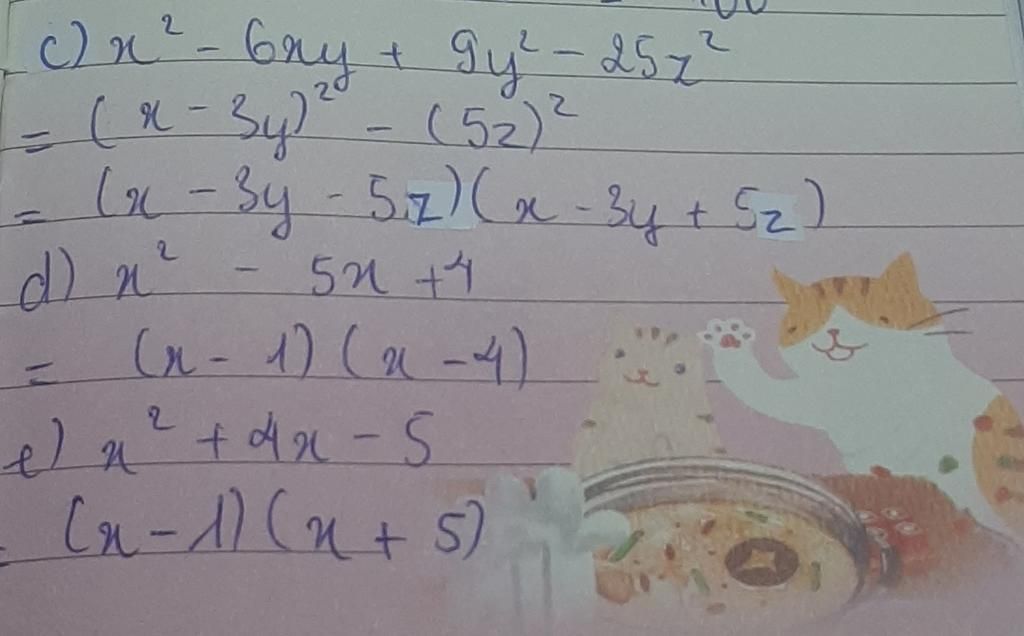 c) x² - 6xy + 9y² - 25z²
= (x - 3y)² - (5z)²
= (x - 3y - 5z)(x - 3y + 5z)
d) x² - 5x + 4
= (x - 1)(x - 4)
e) x² + 4x - 5
(x - 1)(x + 5)